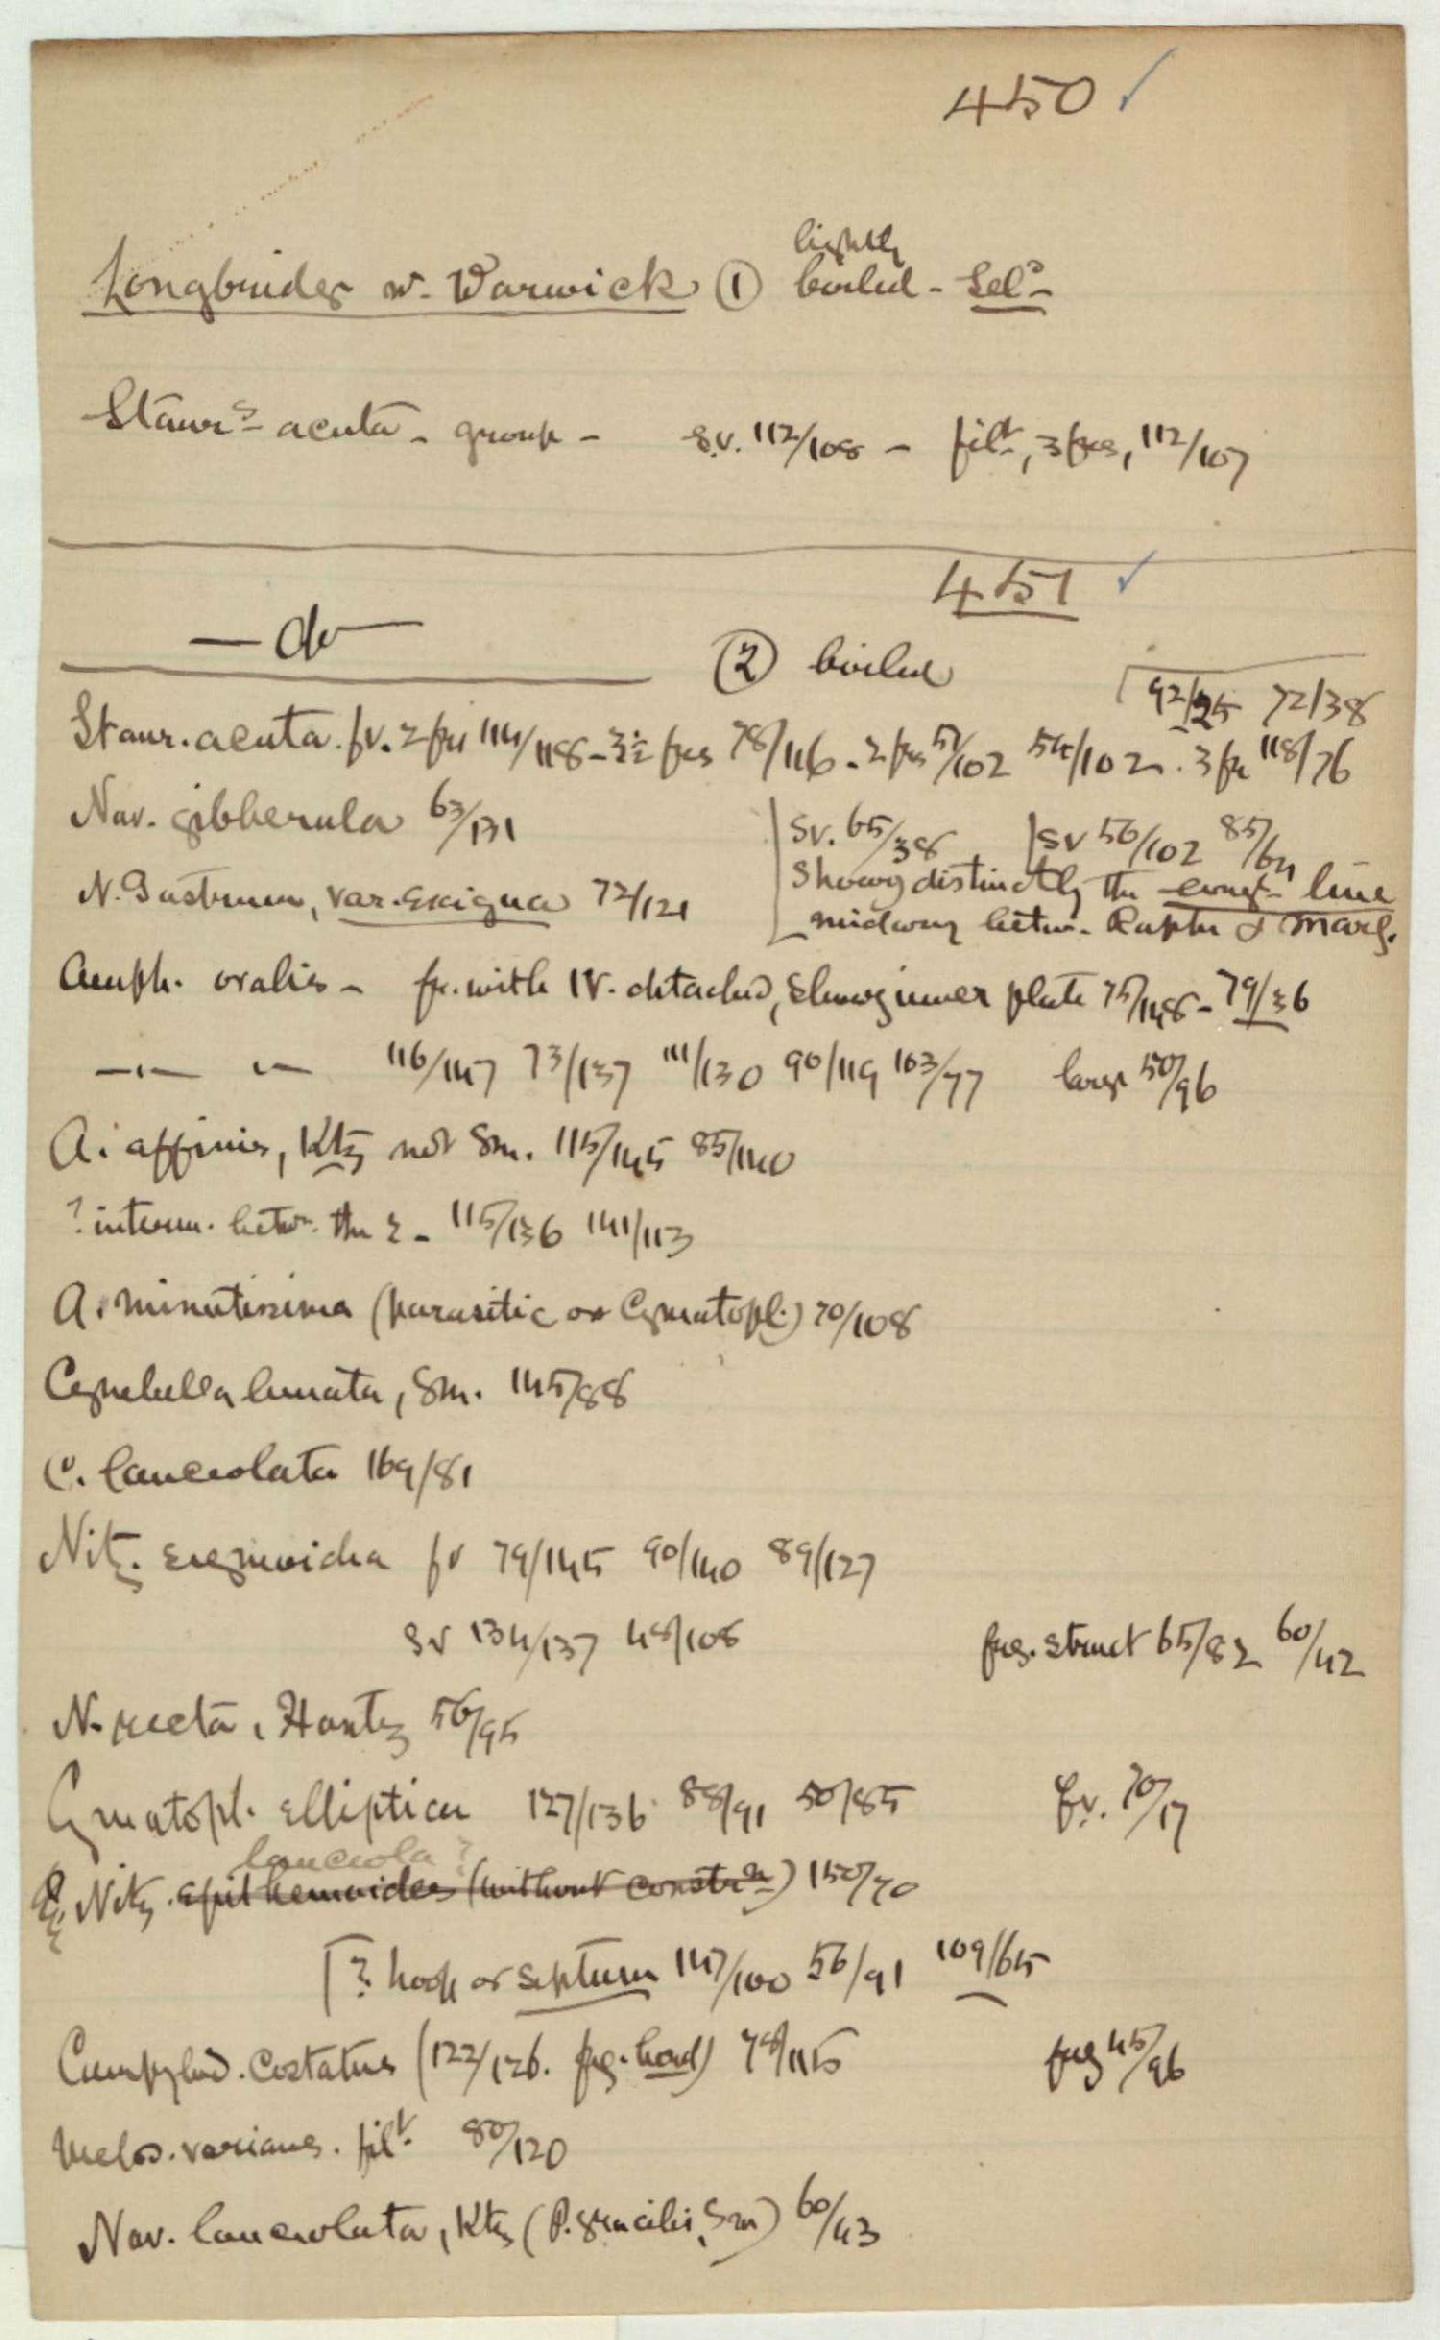 450 ✓
lightly
Longbridge nr. Warwick ① boiled - Sel?
Staurs acuta - group - s.v. 112/108 - filt, 3 frs, 112/107
451 ✓
— do — ② boiled
92/25 72/38
Staur. acuta. fv. 2 frs 114/118 - 3½ frs 78/116 - 2 frs 51/102 54/102 . 3 fr 118/76
Nav. gibberula 63/131
sv. 65/38 sv 56/102 85/64
N. Gastrum, var. exigua 72/121
showg distinctly the line
midway betw. Raphe & marg.
Amph. ovalis - fr. with 1 V. detached, showg inner plate 75/148 - 79/36
—"— "— 116/147 73/137 111/130 90/119 103/77 large 50/96
A. affinis, Ktz not Sm. 115/145 85/140
? interm. betwn. the 2 - 115/136 141/113
A. minutissima (parasitic on Cymatopl.) 70/108
Cymbella lunata, Sm. 145/88
C. lanceolata 169/81
Nitz. sigmoidea fv 79/145 90/140 89/127
sv 134/137 48/108 frg. struct 65/82 60/42
N. recta, Hantz 56/95
Cymatopl. elliptica 127/136 88/91 50/85 fv. 70/17
lanceola?
Nitz. epithemoides (without constrn) 150/70
[? hoop or septum 147/100 56/91 109/65
Campylod. costatus (122/126. frg. hood) 78/115 frg 45/96
Melos. varians. filt. 80/120
Nav. lanceolata, Ktz (P. gracilis, Sm) 60/43